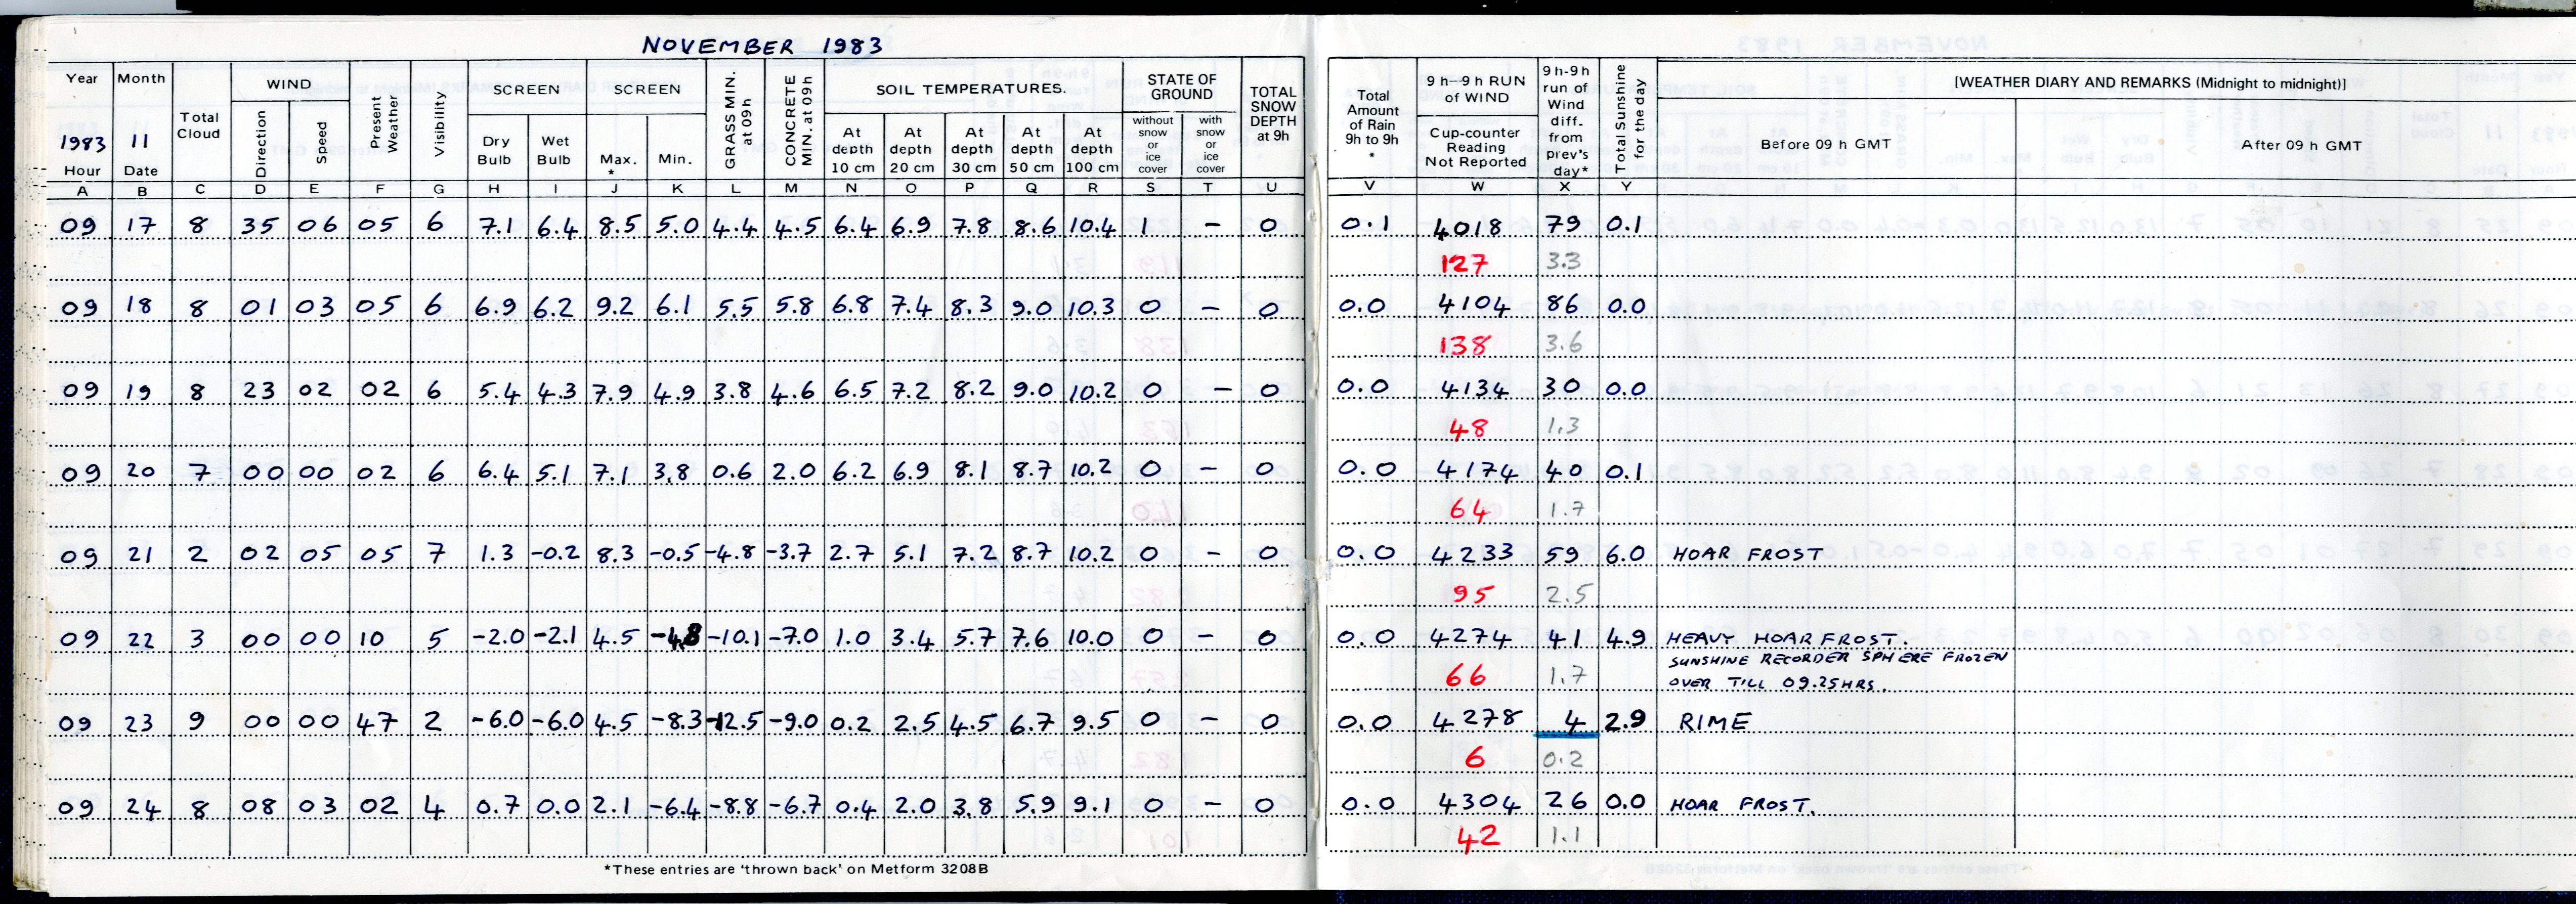 NOVEMBER 1983
Year Month Total Cloud WIND Present Weather Visibility SCREEN SCREEN GRASS MIN. at 09h CONCRETE MIN. at 09h SOIL TEMPERATURES. STATE OF GROUND TOTAL SNOW DEPTH at 9h Total Amount of Rain 9h to 9h * 9 h—9 h RUN of WIND 9 h-9 h run of Wind diff. from prev's day* Total Sunshine for the day [WEATHER DIARY AND REMARKS (Midnight to midnight)]
1983 11 Direction Speed Dry Bulb Wet Bulb Max. * Min. At depth 10 cm At depth 20 cm At depth 30 cm At depth 50 cm At depth 100 cm without snow or ice cover with snow or ice cover Cup-counter Reading Not Reported Before 09 h GMT After 09 h GMT
Hour Date
A B C D E F G H I J K L M N O P Q R S T U V W X Y
09 17 8 35 06 05 6 7.1 6.4 8.5 5.0 4.4 4.5 6.4 6.9 7.8 8.6 10.4 1 – 0 0.1 4018 79 0.1
127 3.3
09 18 8 01 03 05 6 6.9 6.2 9.2 6.1 5.5 5.8 6.8 7.4 8.3 9.0 10.3 0 – 0 0.0 4104 86 0.0
138 3.6
09 19 8 23 02 02 6 5.4 4.3 7.9 4.9 3.8 4.6 6.5 7.2 8.2 9.0 10.2 0 – 0 0.0 4134 30 0.0
48 1.3
09 20 7 00 00 02 6 6.4 5.1 7.1 3.8 0.6 2.0 6.2 6.9 8.1 8.7 10.2 0 – 0 0.0 4174 40 0.1
64 1.7
09 21 2 02 05 05 7 1.3 -0.2 8.3 -0.5 -4.8 -3.7 2.7 5.1 7.2 8.7 10.2 0 – 0 0.0 4233 59 6.0 HOAR FROST
95 2.5
09 22 3 00 00 10 5 -2.0 -2.1 4.5 -4.8 -10.1 -7.0 1.0 3.4 5.7 7.6 10.0 0 – 0 0.0 4274 41 4.9 HEAVY HOAR FROST.
SUNSHINE RECORDER SPHERE FROZEN
66 1.7 OVER TILL 09.25HRS.
09 23 9 00 00 47 2 -6.0 -6.0 4.5 -8.3 -12.5 -9.0 0.2 2.5 4.5 6.7 9.5 0 – 0 0.0 4278 4 2.9 RIME
6 0.2
09 24 8 08 03 02 4 0.7 0.0 2.1 -6.4 -8.8 -6.7 0.4 2.0 3.8 5.9 9.1 0 – 0 0.0 4304 26 0.0 HOAR FROST.
42 1.1
*These entries are 'thrown back' on Metform 3208B